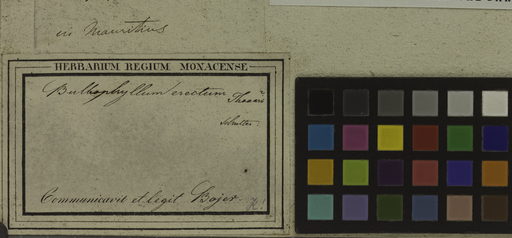 in Mauritius
HERBARIUM REGIUM MONACENSE
Bulbophyllum erectum Thouars
Communicavit et legit Bojer.